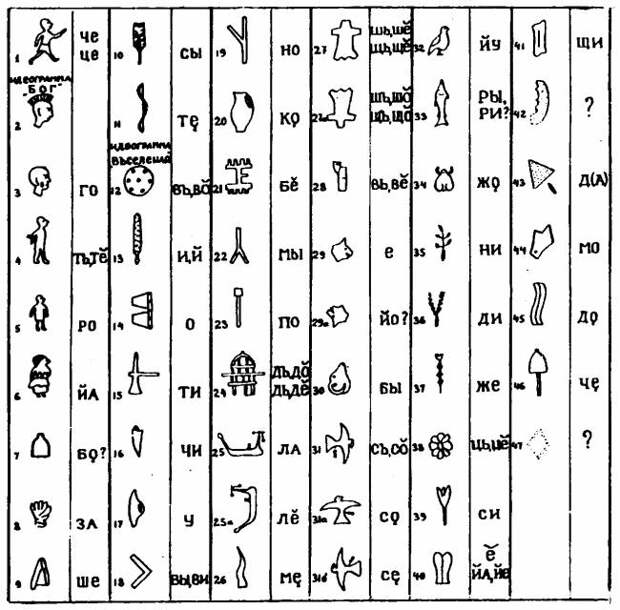 1 ЧЕ ЦЕ 10 СЫ 19 НО 27 ШЬ,ШĔ ЩЬ,ЩĔ 32 ЙУ 41 ЩИ
ИДЕОГРАММА "БОГ"
2 11 ТĘ 20 КǪ 27а ШЪ,ШŎ ЩЪ,ЩŎ 33 РЫ, РИ? 42 ?
ИДЕОГРАММА ВЪСЕЛЕНАЯ
3 ГО 12 ВЪ,ВŎ 21 БĔ 28 ВЬ,ВĔ 34 ЖǪ 43 Д(А)
4 ТЬ,ТĔ 13 И,Й 22 МЫ 29 Е 35 НИ 44 МО
5 РО 14 О 23 ПО 29а ЙО? 36 ДИ 45 ДǪ
6 ЙА 15 ТИ 24 ДЪ,ДŎ ДЬ,ДĔ 30 БЫ 37 ЖЕ 46 ЧĘ
7 БǪ? 16 ЧИ 25 ЛА 31 СЪ,СŎ 38 ЦЬ,ЦĔ 47 ?
8 ЗА 17 У 25а ЛĔ 31а СǪ 39 СИ
9 ШЕ 18 ВЫ,ВИ 26 МĘ 31б СĘ 40 Ĕ ЙА,ЙЕ